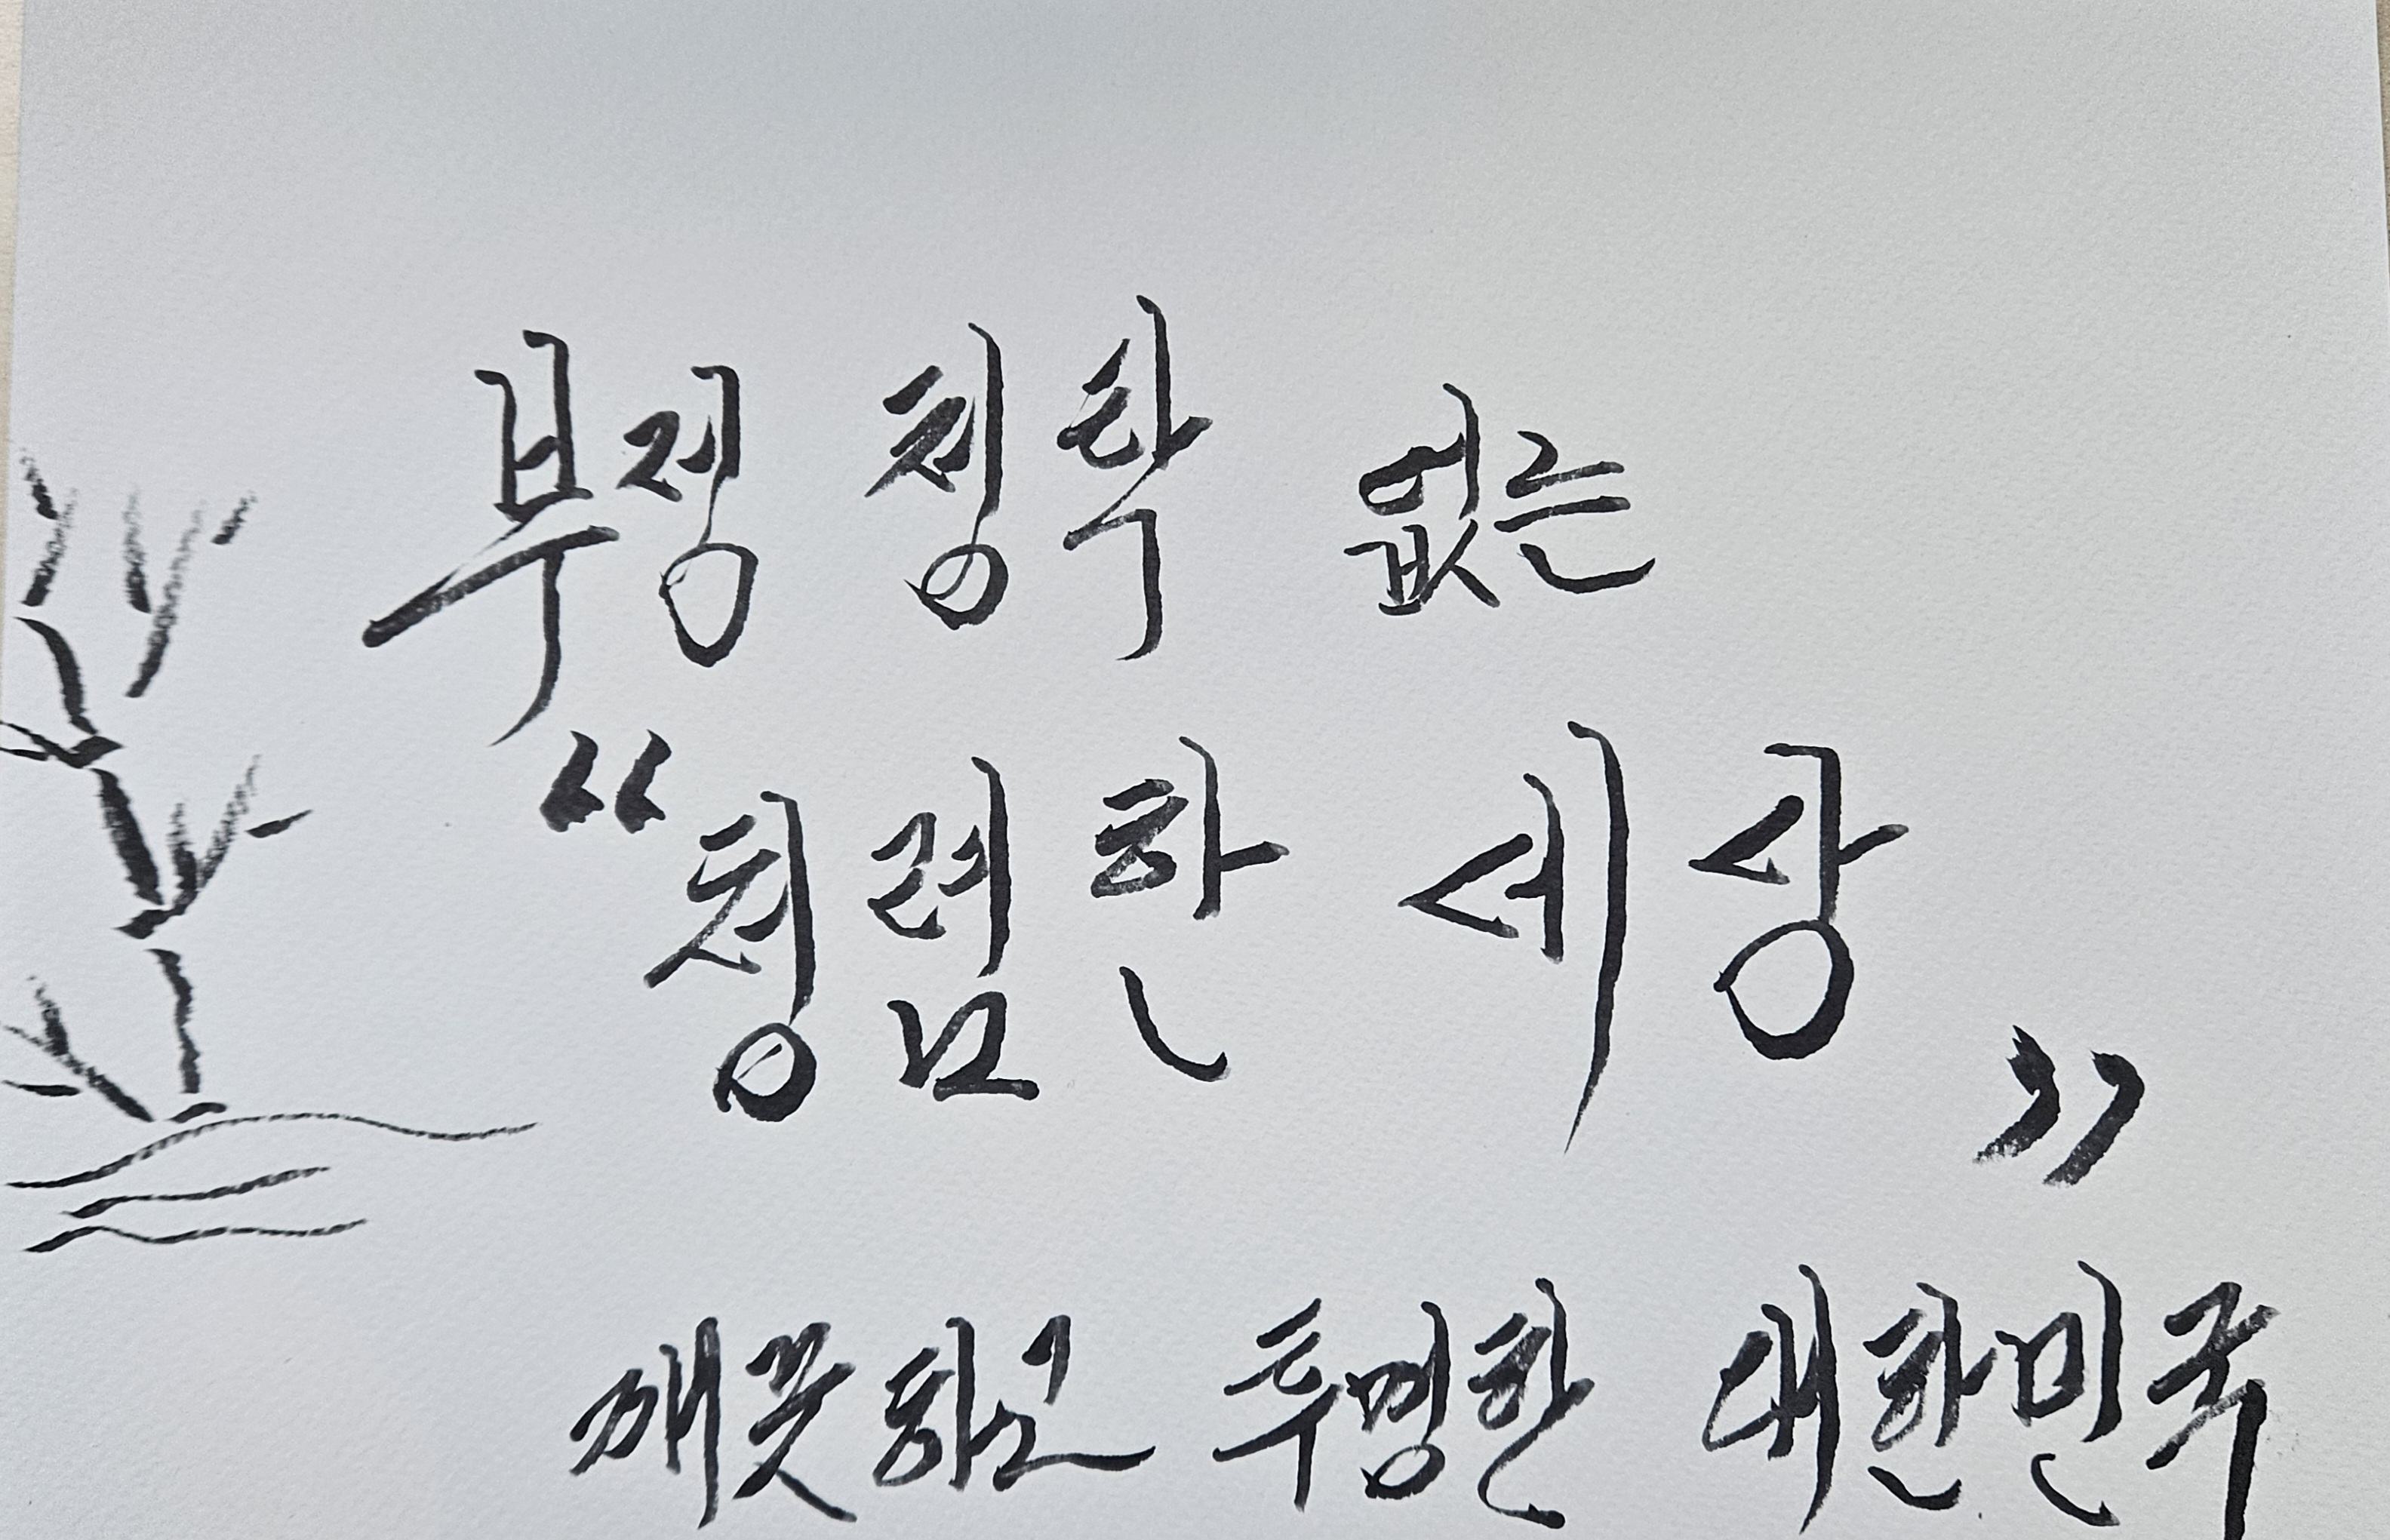 부정 청탁 없는
“청렴한 세상”
깨끗하고 투명한 대한민국